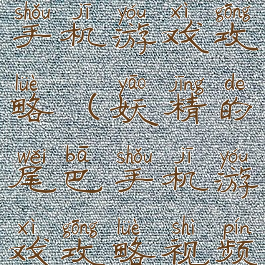 shǒu jī yóu xì gōng
手机游戏攻
lüè yāo jīng de
略(妖精的
wěi bā shǒu jī yóu
尾巴手机游
xì gōng lüè shì pín
戏攻略视频